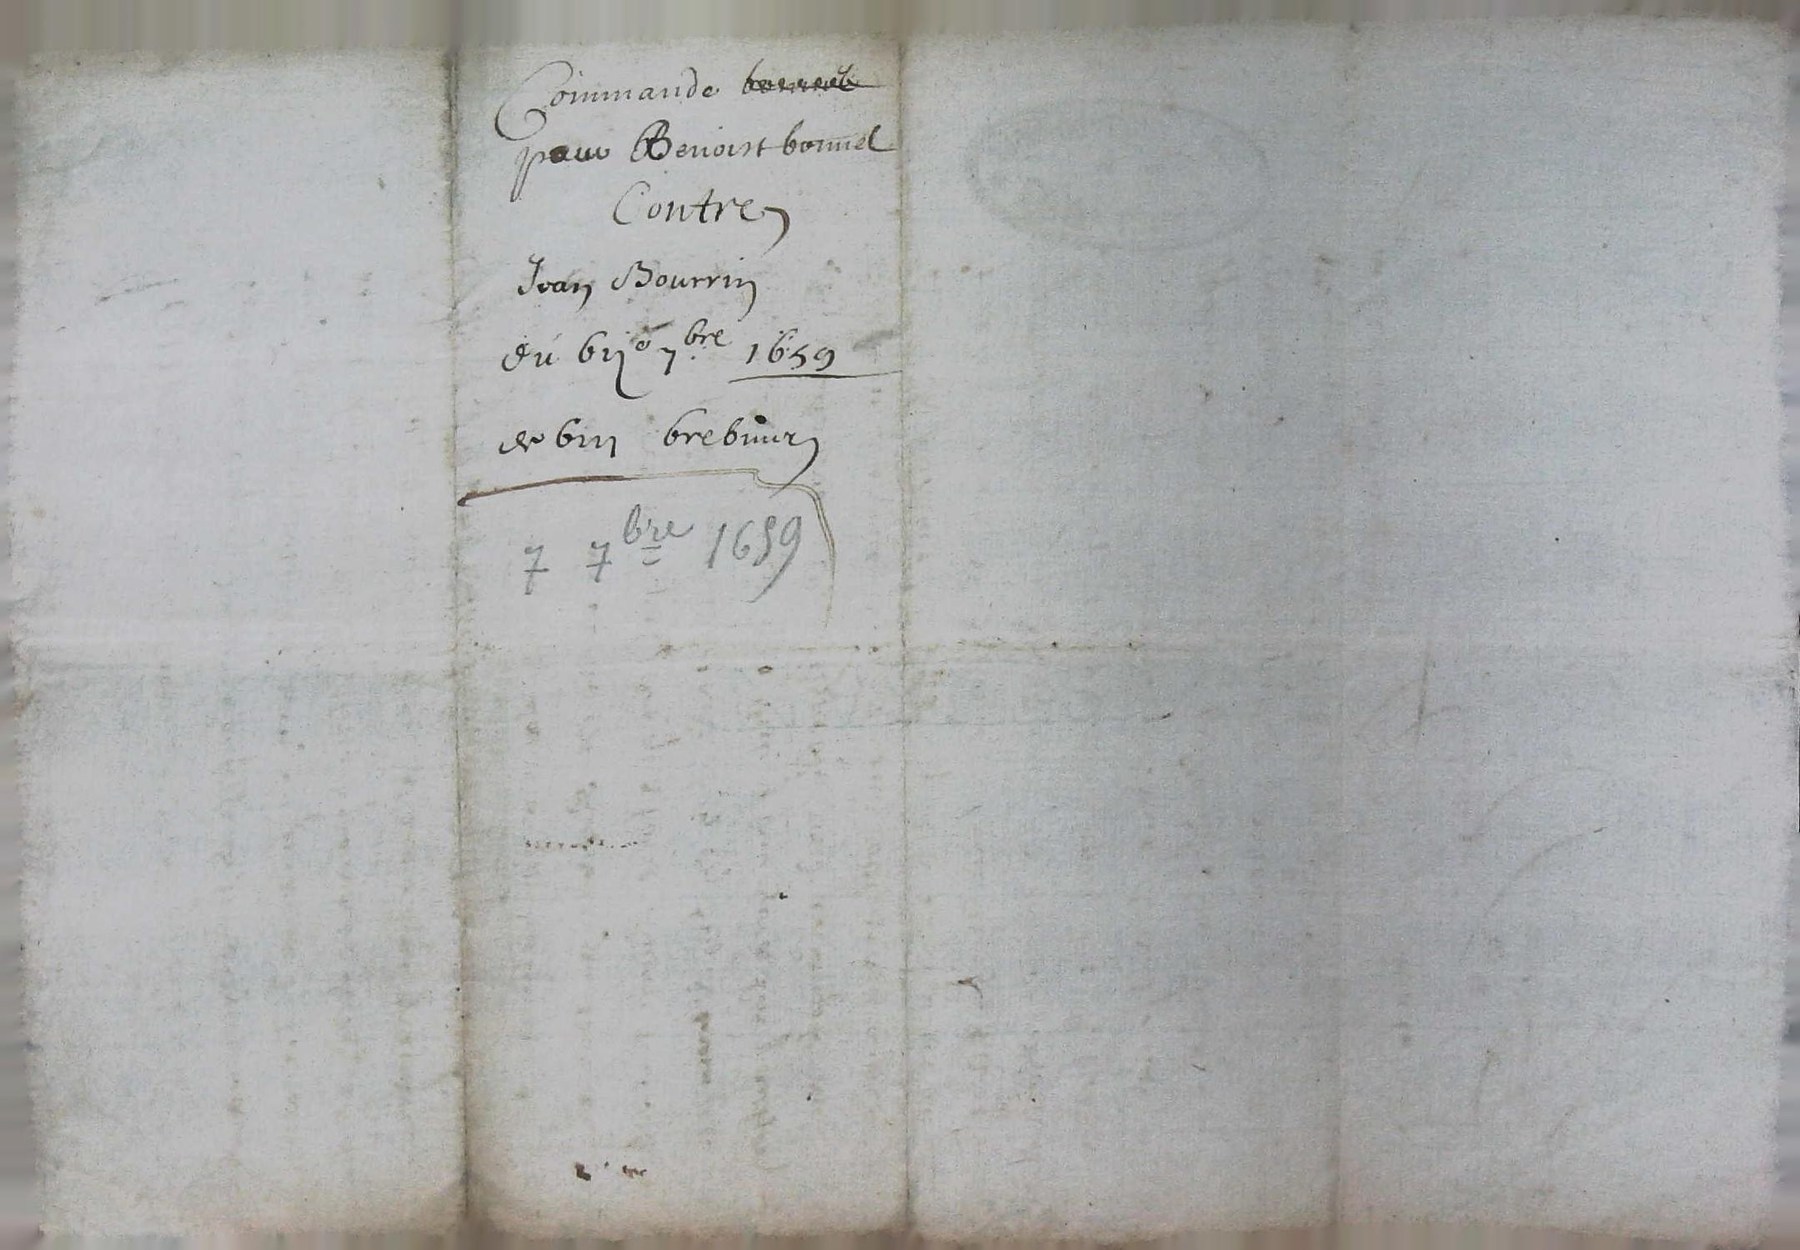 Commande
pour Benoist bonnel
Contre
Jean Bourrin
du vij° 7bre 1659
de viij brebiez
7 7bre 1659